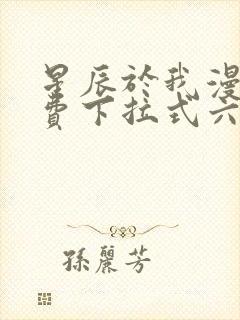 星辰於我漫
費下拉式六
孫麗芳